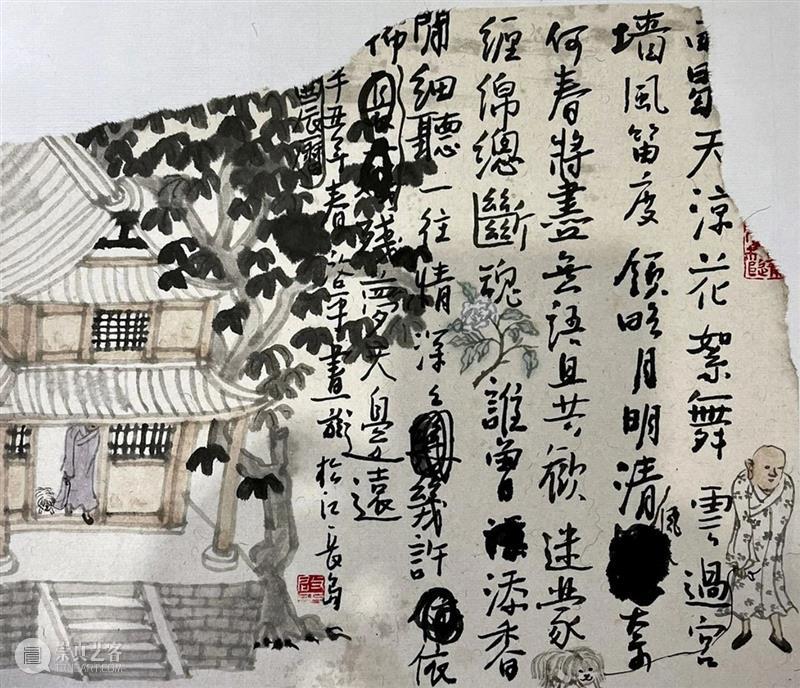 天涼花絮舞雲過宮
墻風笛度領略月明清風奈
何春將盡無語且共歡迷蒙
纏綿總斷魂誰曾添香
閒細聽一往情深幾許依
殘夢天邊遠
辛丑年春洛平畫於江長島
崇真艺客